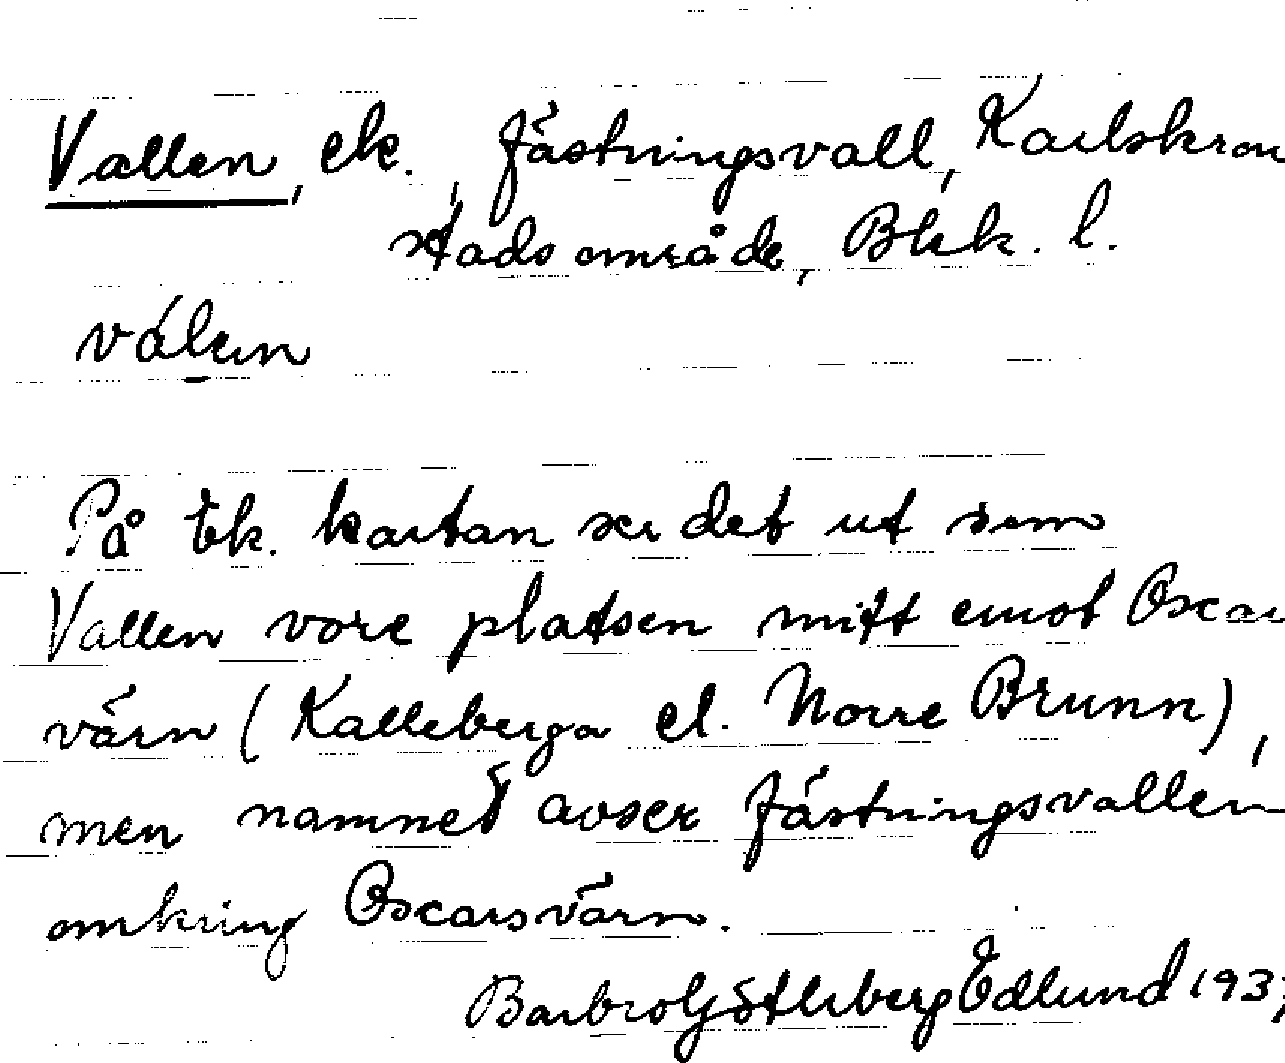 Vallen, ek., fästningsvall, Karlskron
stadsområde, Blek. l.
På Ek. kartan ser det ut som
Vallen vore platsen mitt emot Oscar
värn (Kalleberga el. Norre Brunn),
men namnet avser fästningsvallen
omkring Oscarsvärn.
Barbro Götleberg Edlund 193